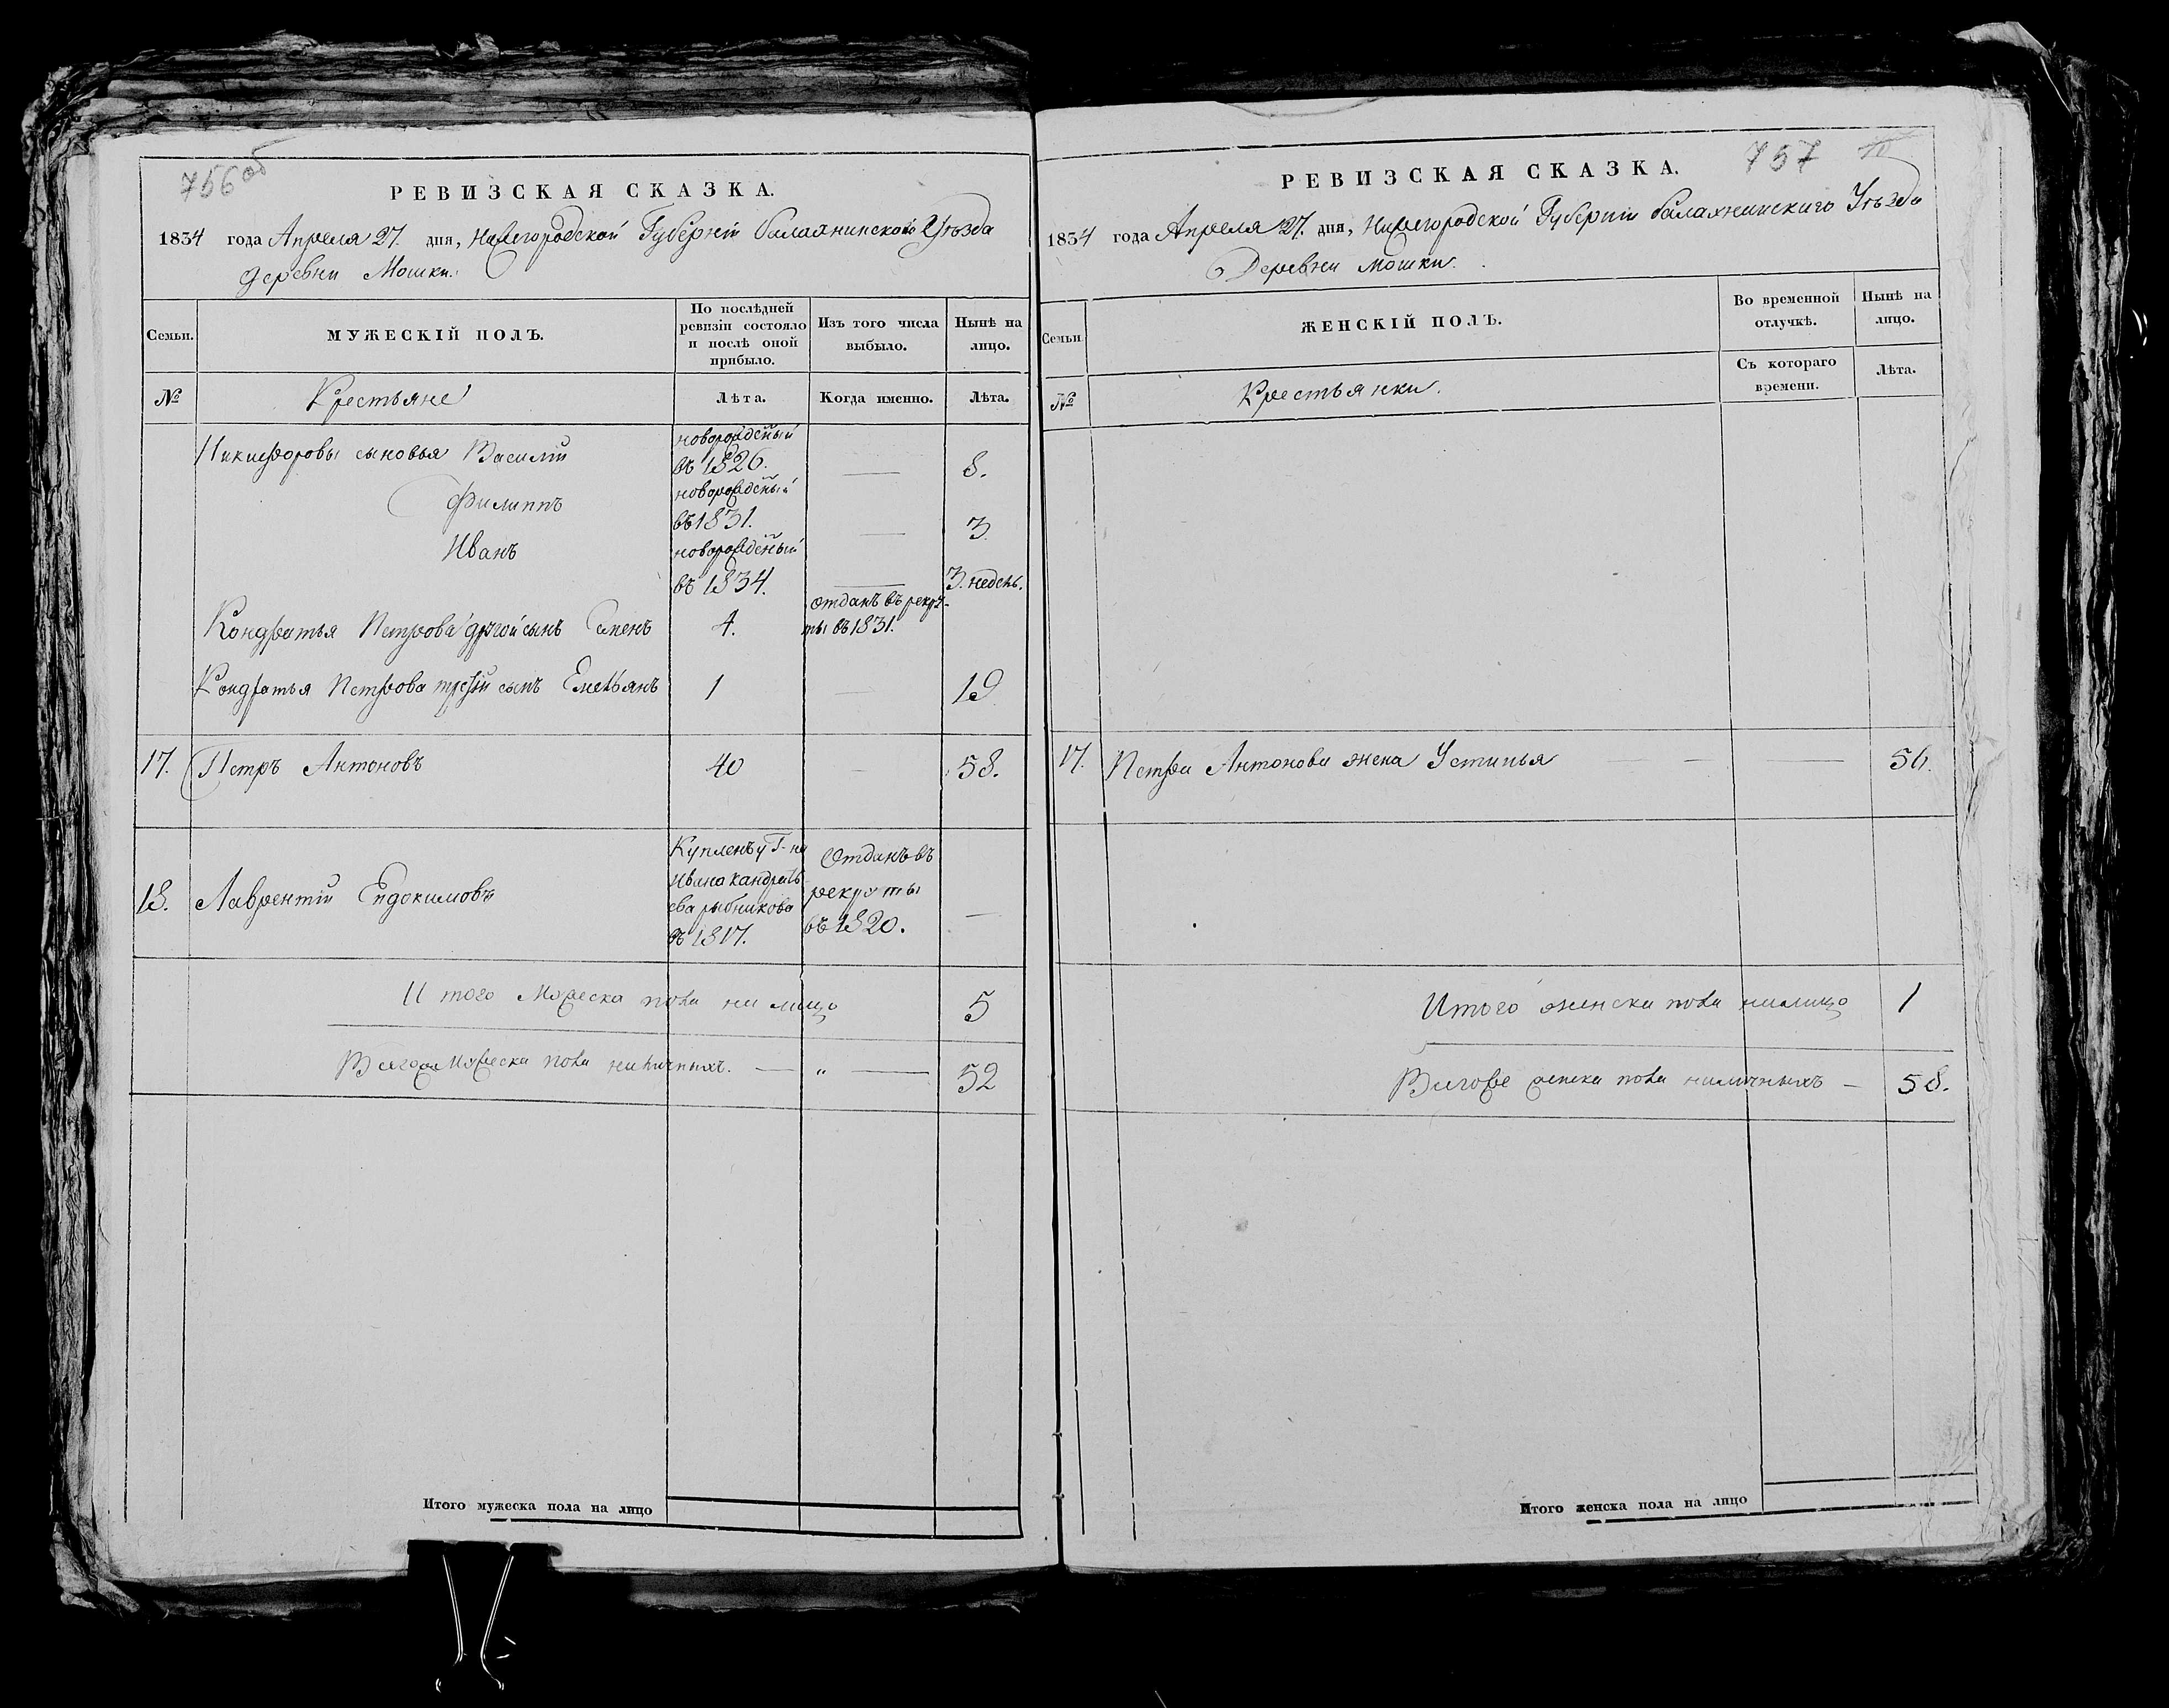 756об
РЕВИЗСКАЯ СКАЗКА.
1834 года Апреля 27. дня, Нижегородской Губерніи балахнинской Уѣзда
деревни Мошки.
Семьи.
МУЖЕСКІЙ ПОЛЪ.
По послѣдней
ревизіи состояло
и послѣ оной
прибыло.
Изъ того числа
выбыло.
Нынѣ на
лицо.
№
Крестьяне
Лѣта.
Когда именно.
Лѣта.
Никифоровы сыновья Василій
новорожденый
въ 1826.
8.
Филиппъ
новорожденый
въ 1831.
3
Иванъ
новорожденый
въ 1834.
3. недель.
Кондратья Петрова другой сынъ Семенъ
4.
отданъ въ рекру-
ты въ 1831.
Кондратья Петрова третій сынъ Емельянъ
1
19
17. Петръ Антоновъ
40
58.
18. Лаврентій Евдокимовъ
Купленъ у Г-на
Ивана Кандратъ
ева рыбникова
въ 1817.
Отданъ въ
рекруты
въ 1820.
Итого Мужеска пола на лицо 5
Всегоже Мужеска пола наличныхъ. — „ — 52
Итого мужеска пола на лицо
757
РЕВИЗСКАЯ СКАЗКА.
1834 года Апреля 27. дня, Нижегородской Губерніи балахнинскаго Уѣзда
Деревни мошки.
Семьи
ЖЕНСКІЙ ПОЛЪ.
Во временной
отлучкѣ.
Нынѣ на
лицо.
№
Крестьянки.
Съ котораго
времени.
Лѣта.
17. Петра Антонова жена Устинья — — 56.
Итого женска пола налицо 1
Всегоже женска пола наличныхъ — 58.
Итого женска пола на лицо